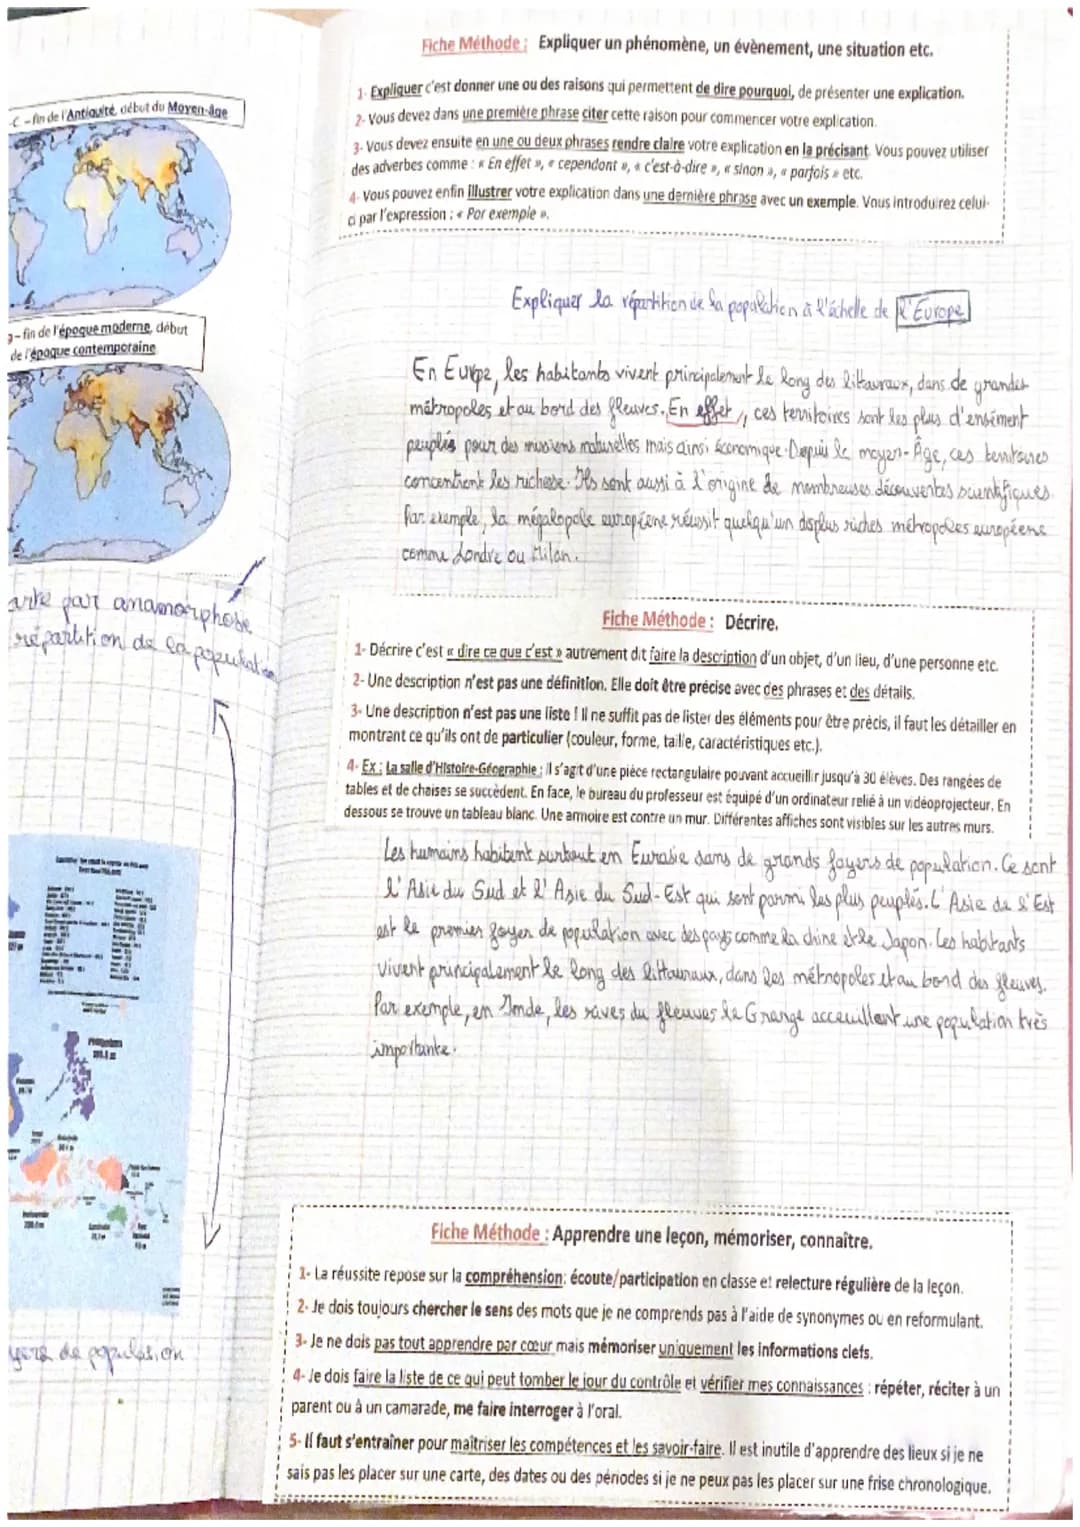 Fiche Méthode : Expliquer un phénomène, un évènement, une situation etc.
1- Expliquer c'est donner une ou des raisons qui permettent de dire pourquoi, de présenter une explication.
2- Vous devez dans une première phrase citer cette raison pour commencer votre explication.
3- Vous devez ensuite en une ou deux phrases rendre claire votre explication en la précisant. Vous pouvez utiliser
des adverbes comme : « En effet », « cependant », « c'est-à-dire », « sinon », « parfois » etc.
4- Vous pouvez enfin illustrer votre explication dans une dernière phrase avec un exemple. Vous introduirez celui-
ci par l'expression : « Par exemple ».
-C -fin de l'Antiquité, début du Moyen-âge
- fin de l'époque moderne, début
de l'époque contemporaine
arte par anamorphose
répartition de la population
Philippines
yers de population
Expliquer la répartition de la population à l'échelle de l'Europe
En Europe, les habitants vivent principalement le long des littauraux, dans de grandes
métropoles et au bord des fleuves. En effet, ces territoires sont les plus d'ensément
peuplés pour des naturelles mais ainsi économique. Depuis le moyen-Âge, ces territoires
concentrent les richesse. Ils sont aussi à l'origine de nombreuses découvertes scientifiques.
Par exemple, la mégalopole européene réussit quelqu'un des plus riches métropoles européene
comme Londre ou Milan.
Fiche Méthode : Décrire.
1- Décrire c'est « dire ce que c'est » autrement dit faire la description d'un objet, d'un lieu, d'une personne etc.
2- Une description n'est pas une définition. Elle doit être précise avec des phrases et des détails.
3- Une description n'est pas une liste ! Il ne suffit pas de lister des éléments pour être précis, il faut les détailler en
montrant ce qu'ils ont de particulier (couleur, forme, taille, caractéristiques etc.).
4- Ex : La salle d'Histoire-Géographie : Il s'agit d'une pièce rectangulaire pouvant accueillir jusqu'à 30 élèves. Des rangées de
tables et de chaises se succèdent. En face, le bureau du professeur est équipé d'un ordinateur relié à un vidéoprojecteur. En
dessous se trouve un tableau blanc. Une armoire est contre un mur. Différentes affiches sont visibles sur les autres murs.
Les humains habitent surtout en Eurasie dans de grands foyers de population. Ce sont
l'Asie du Sud et l'Asie du Sud-Est qui sont parmi les plus peuplés. L'Asie de l'Est
est le premier foyer de population avec des pays comme la chine et le Japon. Les habitants
vivent principalement le long des littauraux, dans les métropoles et au bord des fleuves.
Par exemple, en Inde, les raves du fleuves le Grange acceuillent une population très
importante.
Fiche Méthode : Apprendre une leçon, mémoriser, connaître.
1- La réussite repose sur la compréhension: écoute/participation en classe et relecture régulière de la leçon.
2- Je dois toujours chercher le sens des mots que je ne comprends pas à l'aide de synonymes ou en reformulant.
3- Je ne dois pas tout apprendre par cœur mais mémoriser uniquement les informations clefs.
4- Je dois faire la liste de ce qui peut tomber le jour du contrôle et vérifier mes connaissances : répéter, réciter à un
parent ou à un camarade, me faire interroger à l'oral.
5- Il faut s'entraîner pour maîtriser les compétences et les savoir-faire. Il est inutile d'apprendre des lieux si je ne
sais pas les placer sur une carte, des dates ou des périodes si je ne peux pas les placer sur une frise chronologique.